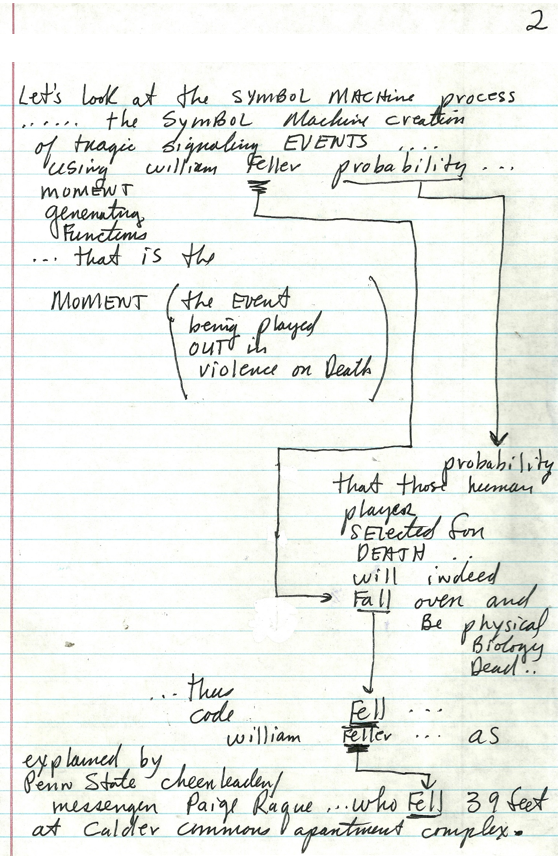 2
Let's look at the SYMBOL MACHINE process
...... the SYMBOL Machine creation
of tragic signaling EVENTS ....
using william Feller probability ...
MOMENT
generating
Functions
... that is the
MOMENT (the Event
being played
OUT in
violence or Death)
probability
that those human
player
SElected for
DEATH ..
will indeed
Fall over and
Be physical
Biology
Dead..
... thus
code Fell ...
william Feller ... as
explained by
Penn State cheerleader/
messenger Paige Raque ... who Fell 39 feet
at Calder commons apartment complex.